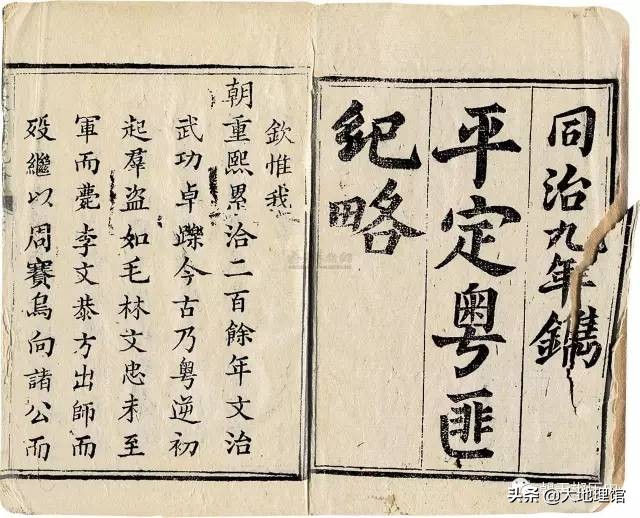 同治九年鐫
平定粤匪
紀略
欽惟我
朝重熙累洽二百餘年文治
武功卓躒今古乃粤逆初
起羣盗如毛林文忠未至
軍而薨李文恭方出師而
殁繼以周賽烏向諸公而
头条 @大地理馆